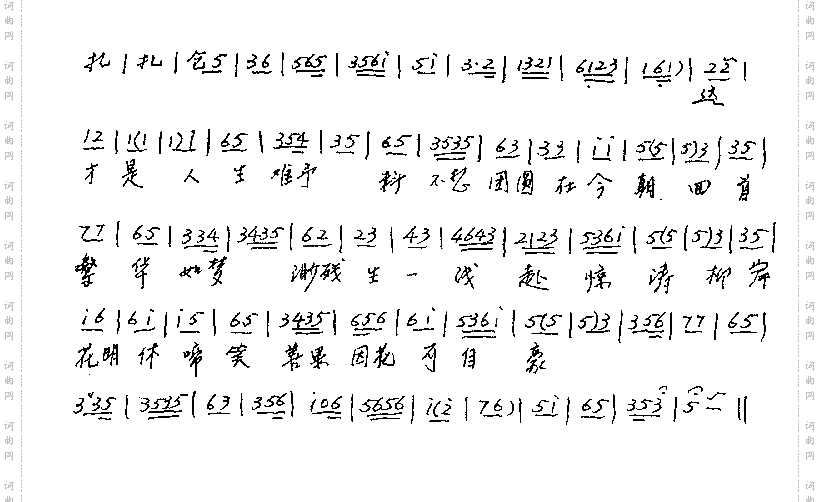 扎 | 扎 | 仓5 | 36 | 565 | 3561̇ | 51̇ | 3·2 | 1321 | 6̣123 | 16̣1) | 25 |
这
12 | 1(1 | 12) | 65 | 354 | 35 | 65 | 3535 | 63 | 33 | 1̇1̇ | 5(5 | 5)3 | 35 |
才 是 人 生 难 料 不 想 团 圆 在 今 朝 回 首
77 | 65 | 334 | 3435 | 62 | 23 | 43 | 4643 | 2123 | 5361̇ | 5(5 | 5)3 | 35 |
繁 华 如 梦 渺 残 生 一 浅 赴 惊 涛 柳 岸
1̇6 | 61̇ | 1̇5 | 65 | 3435 | 656 | 61̇ | 5361̇ | 5(5 | 5)3 | 356 | 77 | 65 |
花 明 休 啼 笑 善 果 因 花 可 自 豪
335 | 3535 | 63 | 356 | 1̇06 | 5656 | 1̇(2̇ | 76) | 51̇ | 65 | 353 | 5 — ‖
词曲网
词曲网
词曲网
词曲网
词曲网
词曲网
词曲网
词曲网